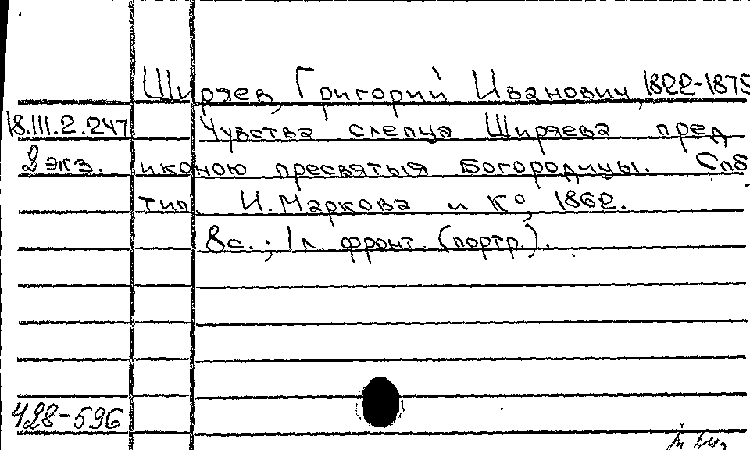 Ширяев, Григорий Иванович, 1822-1875
18.III.2.247 Чувства слепца Ширяева пред
2 экз. иконою пресвятыя Богородицы. Спб
тип. И. Маркова и К°, 1862.
8с.; 1 л. фронт. (портр.).
428-596